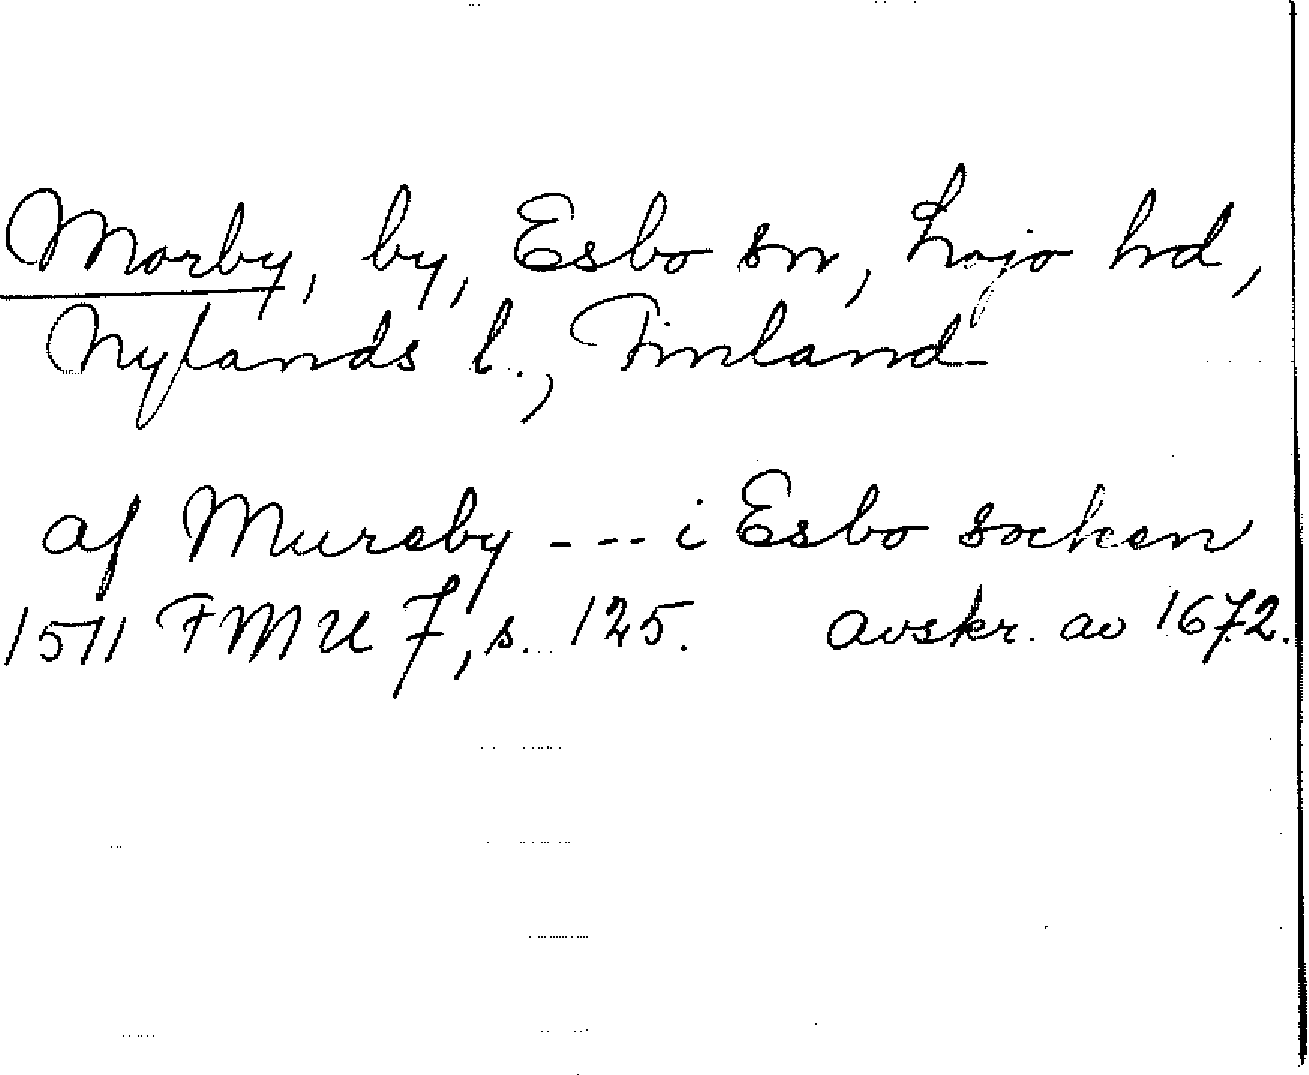 Morby, by, Esbo sn, Lojo hd,
Nylands l., Finland
af Mureby --- i Esbo socken
1511 FMU 7, s. 125. avskr. av 1672.